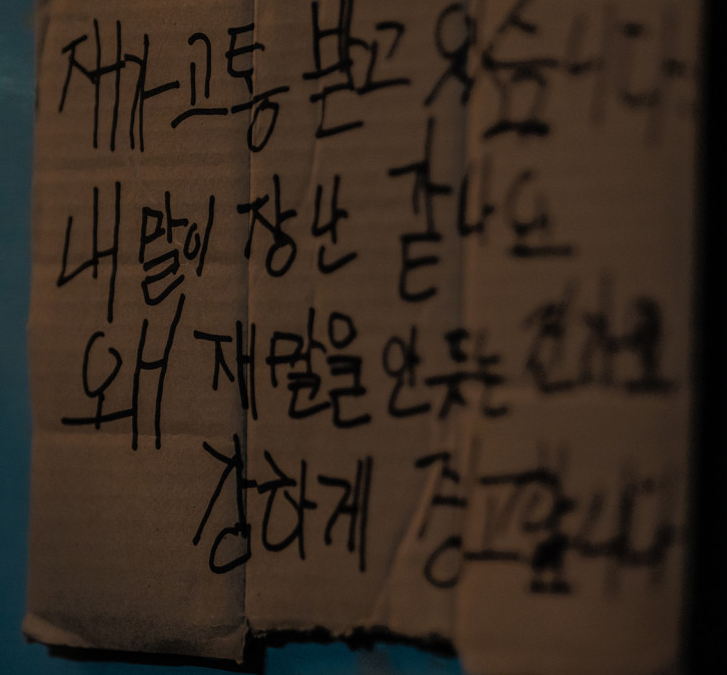 재가 고통 받고 있습니다
내 말이 장난 같나요
왜 재 말을 안듯는 건가요
강하게